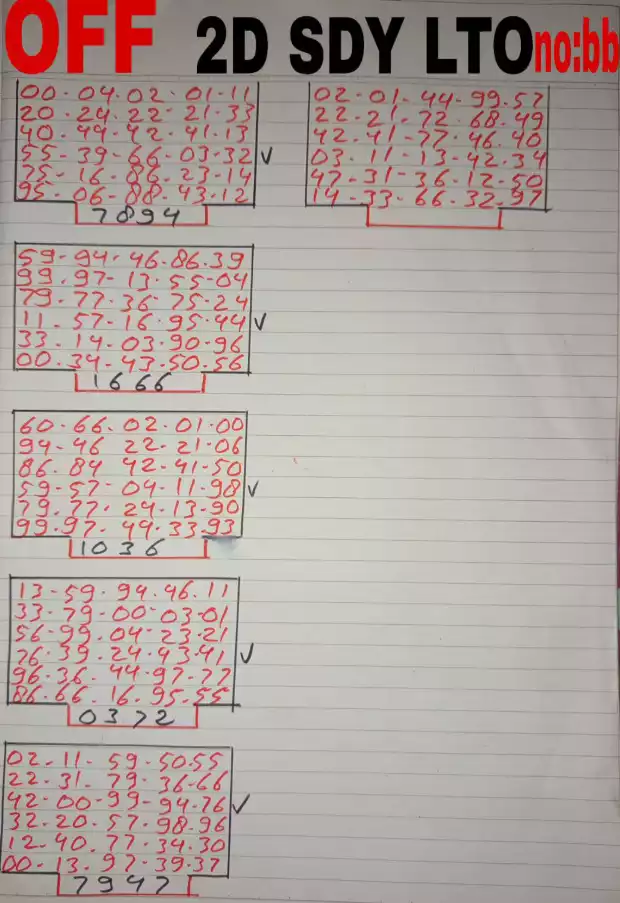 OFF 2D SDY LTO no:bb
00-04-02-01-11
20-24-22-21-33
40-44-42-41-13
55-39-66-03-32 ✓
75-16-86-23-14
95-06-88-43-12
7894
59-94-46.86.39
99.97-13.55-04
79-77-36-75-24
11.57-16.95-44 ✓
33.14-03.90-96
00.34-43.50.56
1666
60.66.02.01.00
94-46 22-21-06
86.84 42-41-50
59-57-04-11.98 ✓
79.77-24-13-90
99.97-44-33.93
1036
13-59.94.46.11
33-79-00-03-01
56-99.04-23-21
76-39.24-43-41 ✓
96-36.44-97-77
86.66.16.95.55
0372
02-11-59-50.55
22-31.79-36-66
42-00-99-94-76 ✓
32-20-57-98-96
12-40.77-34.30
00-13.97-39-37
7947
02-01-44-99.57
22-21-72.68-49
42-41-77-46.40
03.11-13-42.34
47-31-36-12-50
14-33-66.32.97